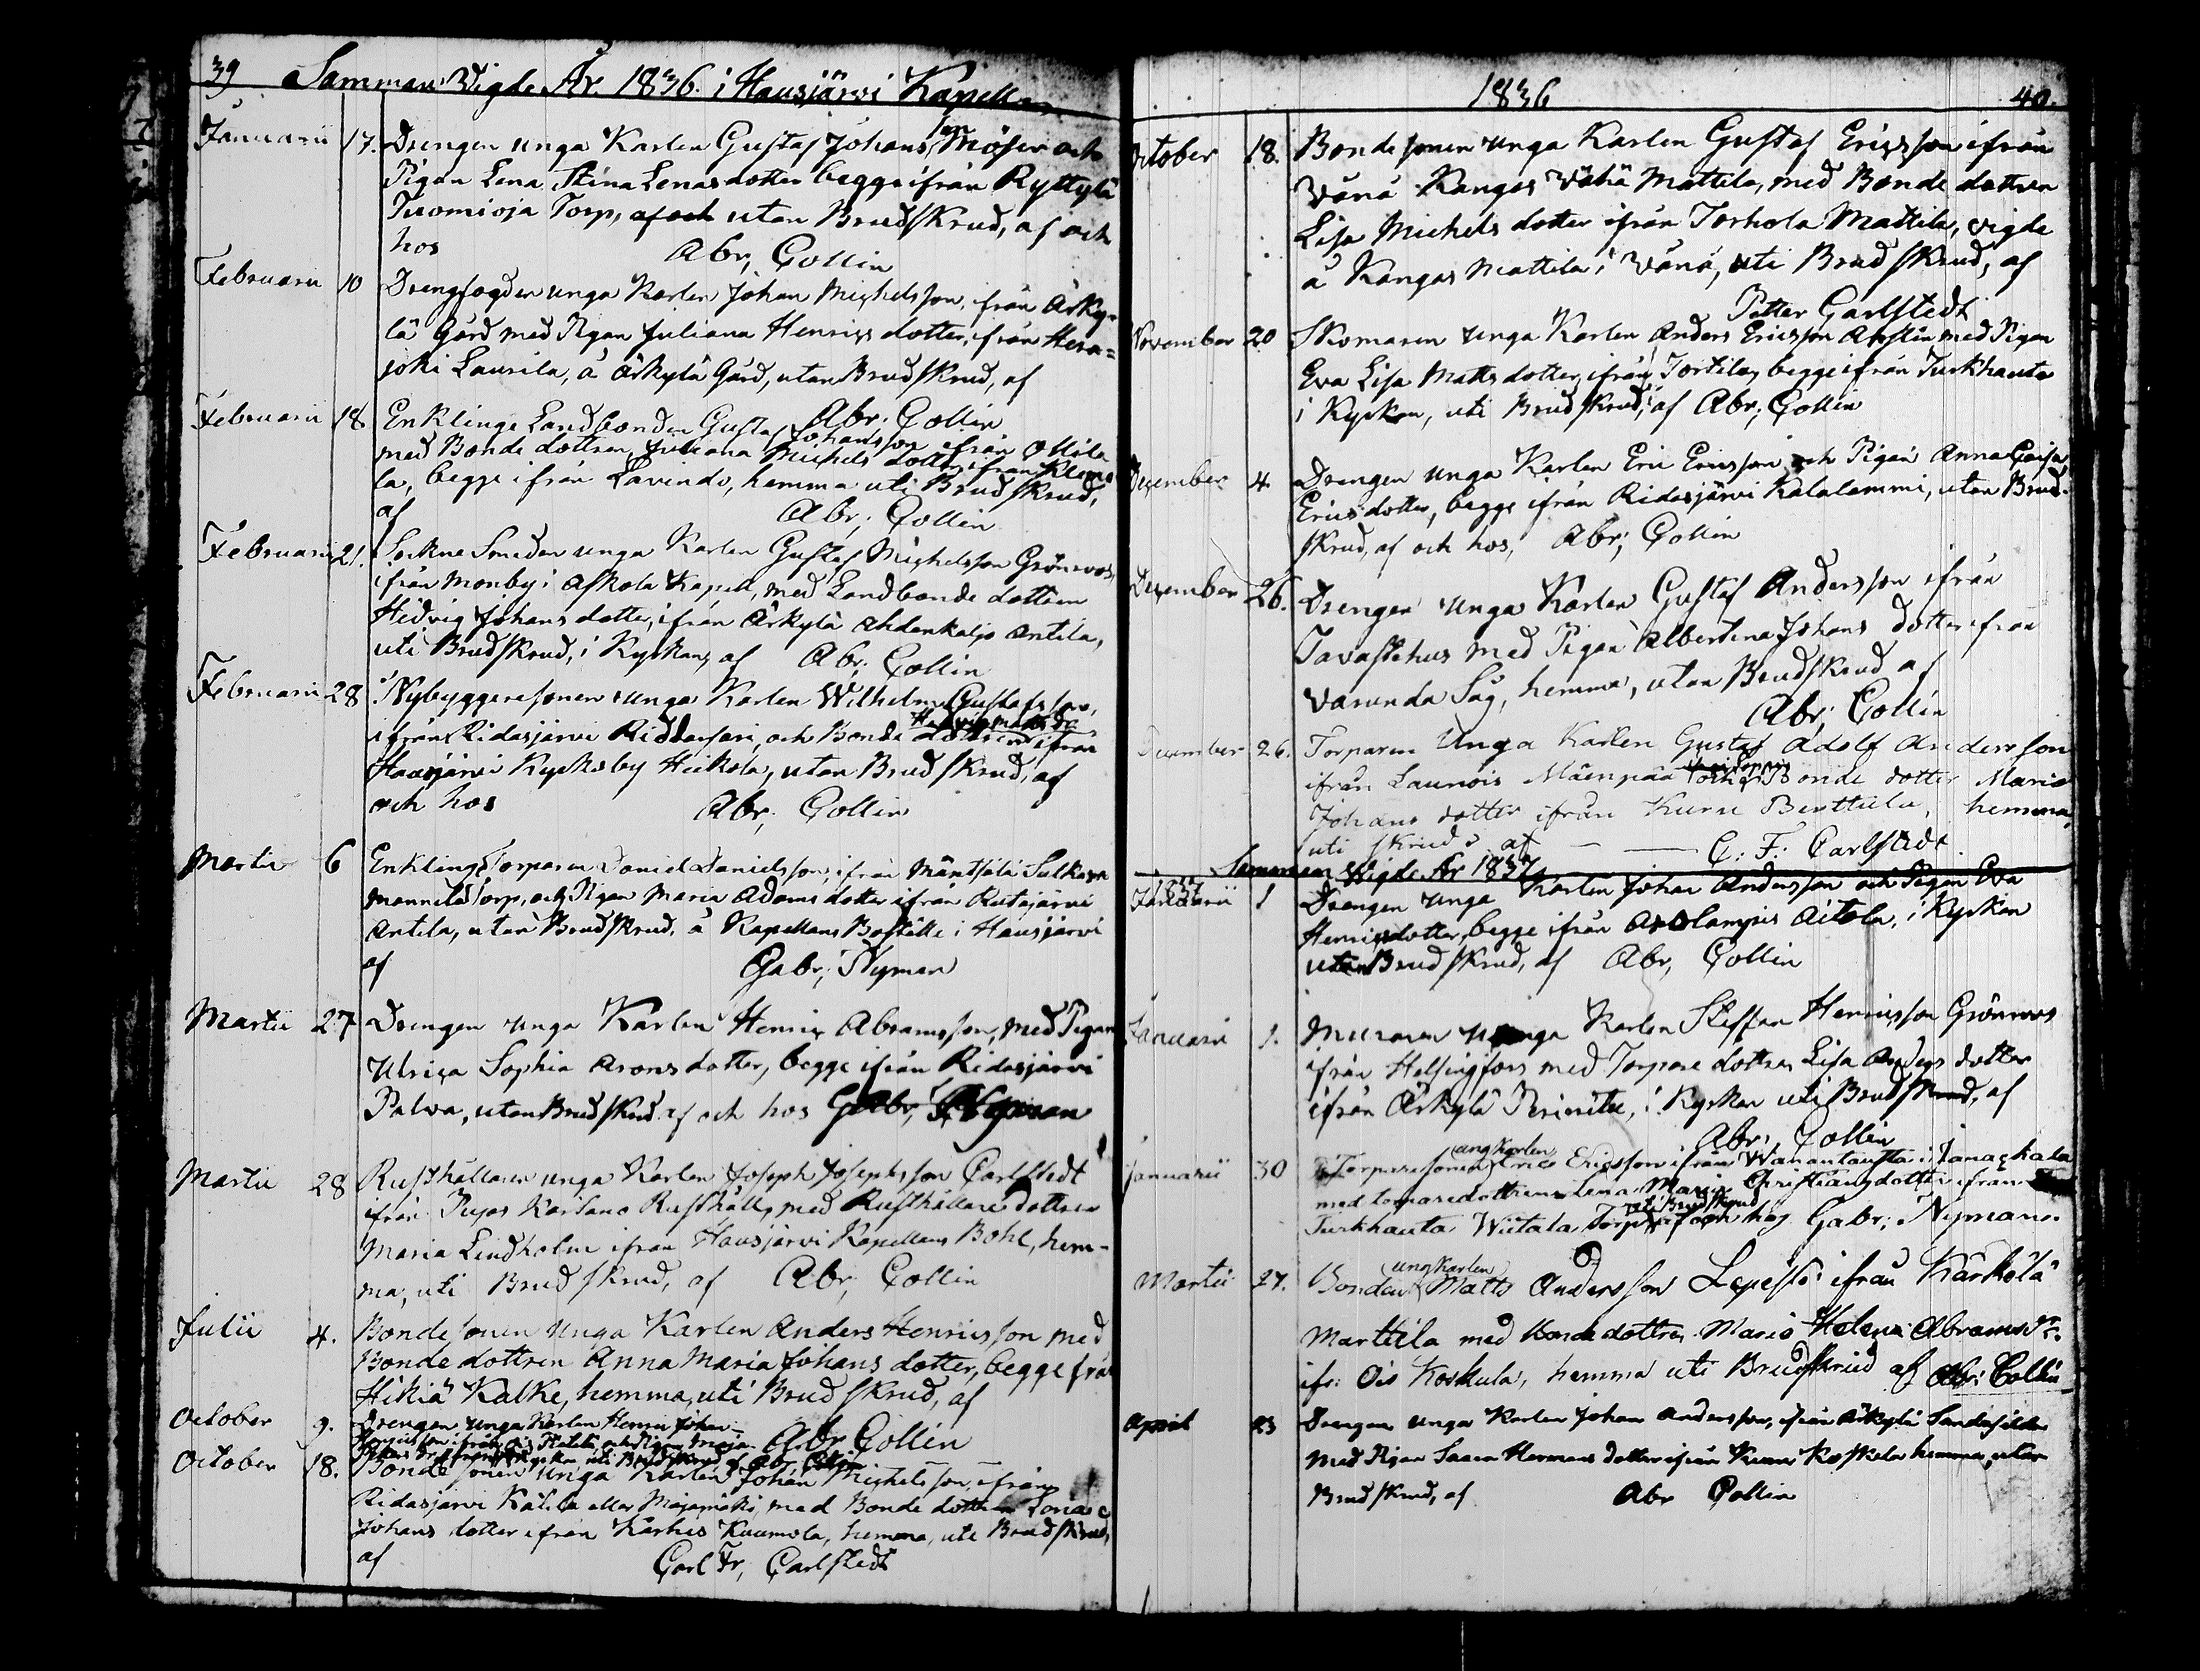 39 Samman Vigde År 1836 i Hausjärvi Kapell
Januarii 17. Drengen unga Karlen Gustaf Johansson Möser och
Pigan Lena Stina Lenasdotter begge ifrån Ryttylä
Tuomioja Torp, af och utan Brudskrud, af och
hos Abr, Collin
Februarii 10 Drengfogden unga Karlen Johan Michelsson, ifrån Ärky-
lä Gård med Pigan Juliana Henrics dotter, ifrån Hera-
joki Laurila, å Ärkylä Gård, utan Brudskrud, af
Abr; Collin
Februarii 18 Enklinge Landbonden Gustaf Johansson ifrån
med Bonde dottren Juliana Michels dotter ifrån
la, begge ifrån Lavindo, hemma uti Brudskrud,
af Abr; Collin
Februarii 21. Sockne Smeden unga Karlen Gustaf Michelsson Grönroos
ifrån Monby i Askola Kapell, med Landbonde dottren
Hedvig Johans dotter, ifrån Ärkylä Ahdenkaljo Antila,
uti Brudskrud, i Kyrkan, af Abr; Collin
Februarii 28 Nybyggaresonen unga Karlen Wilhelm Gustafsson,
Hedvig Matts Dr
ifrån Ridasjärvi Riddarsari, och Bonde dottren ifrån
Hausjärvi Kyrkoby Heikola, utan Brudskrud, af
och hos Abr, Collin
Martii 6 Enkling Torparen Daniel Danielsson, ifrån Mäntsälä Sulkava
Mannila Torp, och Pigan Maria Adams dotter ifrån Rutajärvi
Antila, utan Brudskrud, å Kapellans Boställe i Hausjärvi
af Gabr; Nyman
Martii 27 Drengen unga Karlen Henric Abramsson, med Pigan
Ulrica Sophia Arons dotter, begge ifrån Ridasjärvi
Palva, utan Brudskrud af och hos Gabr; Nyman
Martii 28 Rusthållaren unga Karlen Joseph Josephsson Carlstedt
ifrån Karsano Rusthåll, med Rusthållare dottren
Maria Lindholm ifrån Hausjärvi Kapellans Bohl, hem-
ma, uti Brudskrud, af Abr, Collin
Julii 4. Bondesonen unga Karlen Anders Henricsson med
Bonde dottren Anna Maria Johans dotter, begge från
Hikiä Kalke, hemma, uti Brudskrud, af
Abr Collin
October 9. Drengen unga Karlen Henric Johan
Henricsson ifrån Ois och Pigan Maja
Kyrkan uti Brudskrud af Abr Collin
October 18. Bonde sonen unga Karlen Johan Michelsson, ifrån
Ridasjärvi Kälelä eller Majamäki, med Bonde dottren
Johans dotter ifrån Karhis Kuumola, hemma, uti Brudskrud,
af Carl Fr, Carlstedt
1836 40.
October 18. Bonde sonen unga Karlen Gustaf Ericsson ifrån
Vånå Kangas Vähä Mattila, med Bonde dottren
Lisa Michels dotter ifrån Torhola Mattila, vigde
å Kangas Mattila i Vånå, uti Brudskrud, af
Petter Carlstedt
November 20 Skomaren unga Karlen Anders Ericsson med Pigan
Eva Lisa Matts dotter, ifrån Torttila, begge ifrån Turkhauta
i Kyrkan, uti Brudskrud, af Abr; Collin
December 4. Drengen unga Karlen Eric Ericsson och Pigan Anna Caisa
Ericsdotter, begge ifrån Ridasjärvi Kalalammi, utan Brud-
skrud, af och hos, Abr; Collin
December 26. Drengen unga Karlen Gustaf Andersson ifrån
Tavastehus med Pigan Albertina Johans dotter ifrån
Varunda Såg, hemma, utan Brudskrud af
Abr; Collin
December 26. Torparen Unga Karlen Gustaf Adolf Andersson
ifrån Launois Mäenpää och Bonde dotter Maria
Johans dotter ifrån Kuru Benttula, hemma,
uti skrud, af C. F. Carlstedt
Samman Vigde År 1837
1837
Januarii 1 Drengen Unga Karlen Johan Andersson och Pigan Eva
Henricsdotter, begge ifrån Arolampis Aitola, i Kyrkan
utan Brudskrud, af Abr, Collin
Januarii 1. Muraren unga Karlen Staffan Henricsson Grönroos
ifrån Helsingfors med Torpare dottren Lisa Anders dotter
ifrån Ärkylä, i Kyrkan uti Brudskrud, af
Abr; Collin
ung Karlen
Januarii 30 Torparesonen Eric Ericsson ifrån Wanantausta i Janackala
med dottren Lena Maria Christiansdotter ifrån
uti Brudskrud
Turkhauta Wiitala Torp af och hos Gabr; Nyman
ung Karlen
Martii 27. Bonden Matts Andersson Lepistö ifrån Kärkölä
Marttila med Bonde dottren Maria Helena Abrams Dr.
ifr: Ois Koskula, hemma uti Brudskrud af Abr: Collin
April 23 Drengen unga Karlen Johan Andersson, ifrån Ärkylä
med Pigan Saara Hermans dotter ifrån Kuru Koskela hemma, utan
Brudskrud, af Abr Collin